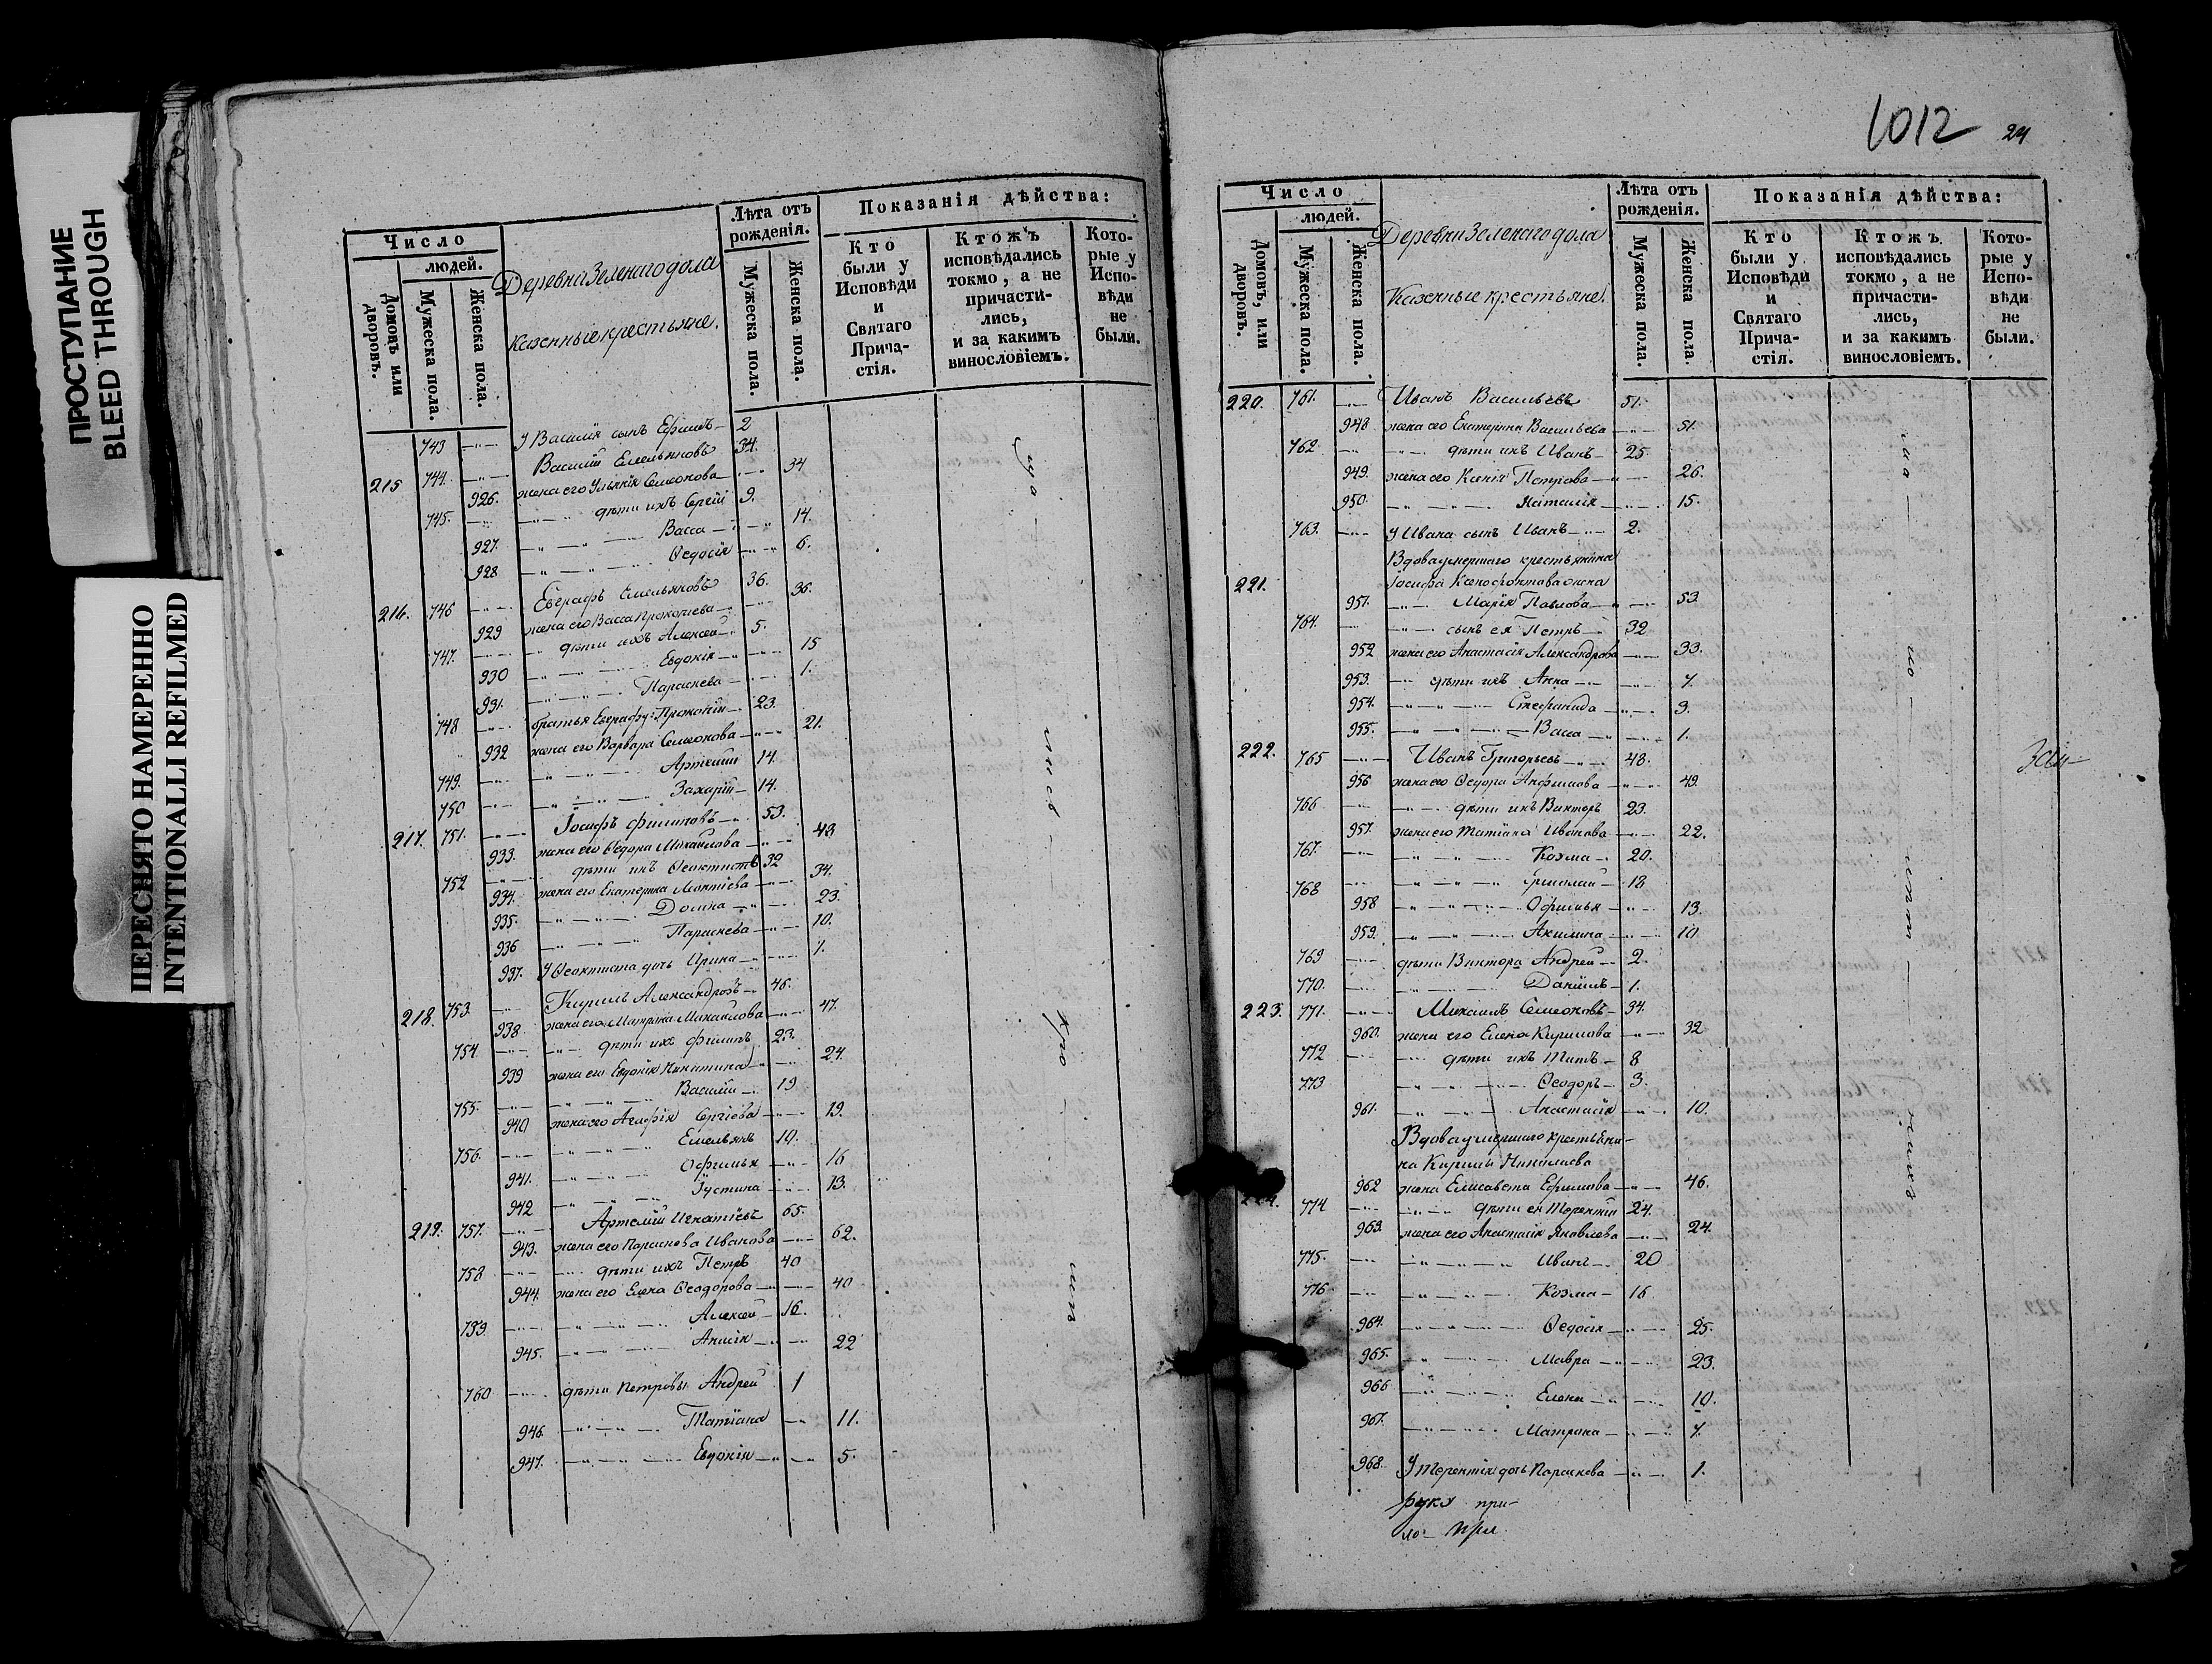 ПРОСТУПАНИЕ
BLEED THROUGH
ПЕРЕСНЯТО НАМЕРЕННО
INTENTIONALLI REFILMED
Число
людей.
Домовъ или дворовъ.
Мужеска пола.
Женска пола.
Деревни Зеленаго дола
Казенные крестьяне.
Лѣта отъ рожденія.
Мужеска пола.
Женска пола.
Показанія дѣйства:
Кто были у Исповѣди и Святаго Прича-стія.
Ктожъ исповѣдались токмо, а не причасти-лись, и за какимъ винословіемъ.
Кото-рые у Испо-вѣди не были.
743 У Василія сынъ Ефимъ 2
215 744. Василій Емельяновъ 34.
926. жена его Ульянія Семенова 34
745. дѣти ихъ Сергій 9.
927. Васса 14.
928 Ѳедосія 6.
216. 746 Евграфъ Емельяновъ 36.
929 жена его Васса Прокопіева 36.
747. дѣти ихъ Алексей 5.
930 Евдокія 15
931. Параскева 1.
748 братья Евграфу: Прокопій 23.
932 жена его Варвара Семенова 21.
749. Артемій 14.
750 Захарій 14.
217. 751. Іосифъ Филиповъ 53.
933. жена его Ѳедора Михайлова 43.
752 дѣти ихъ Ѳеоктистъ 32
934. жена его Екатерина 34.
935. Домна 23.
936 Параскева 10.
937. У Ѳеоктиста дочь Ирина 1.
218. 753. Кирилъ Александровъ 46.
938 жена его Матрона Михайлова 47.
754 дѣти ихъ Филипъ 23.
939 жена его Евдокія Никитина 24.
755. Василій 19
940 жена его Агафія Сергіева 19.
756. Емельянъ 10.
941. Ѳефимья 16
942 Іустина 13.
219. 757. Артемій Игнатіевъ 65.
943. жена его Параскева Иванова 62.
758 дѣти ихъ Петръ 40
944. жена его Елена Ѳеодорова 40
759. Алексей 16.
945. Анисія 22
760 дѣти Петровы Андрей 1
946. Татіана 11.
947. Евдокія 5.
1012 24
Число
людей.
Домовъ, или дворовъ.
Мужеска пола.
Женска пола.
Деревни Зеленаго дола
Казенные крестьяне.
Лѣта отъ рожденія.
Мужеска пола.
Женска пола.
Показанія дѣйства:
Кто были у Исповѣди и Святаго Прича-стія.
Ктожъ исповѣдались токмо, а не причасти-лись, и за какимъ винословіемъ.
Кото-рые у Испо-вѣди не были.
220. 761. Иванъ Васильевъ 51.
948 жена его Екатерина Васильева 51.
762 дѣти ихъ Иванъ 25
949. жена его Ксенія Петрова 26.
950. Наталія 15.
763. У Ивана сынъ Иванъ 2.
Вдова умершаго крестьянина
221. Іосифа Ксенофонтова жена
951. Марія Павлова 53
764. сынъ ея Петръ 32
952 жена его Анастасія Александрова 33.
953. дѣти ихъ Анна 7.
954. Стефанида 3.
955. Васса 1.
222. 765 Иванъ Григорьевъ 48.
956 жена его Ѳедора Анфимова 49.
766 дѣти ихъ Викторъ 23.
957. жена его Татіана Иванова 22.
767. Козма 20.
768 18
958 Ѳфимья 13.
959. Акилина 10
769 дѣти Виктора Андрей 2.
770. Даніилъ 1.
223. 771. Михаилъ Семеновъ 34.
960. жена его Елена Кирилова 32
772 дѣти ихъ Титъ 8
773 Ѳеодоръ 3.
961. Анастасія 10.
Вдова умершаго крестьяни-
на Кирилы Николаева
962 жена Елисавета Ефимова 46.
224. 774 дѣти ея Терентій 24.
963. жена его Анастасія Яковлева 24.
775. Иванъ 20
776 Козма 16
964. Ѳедосія 25.
965. Мавра 23.
966 Елена 10.
967. Матрона 7.
968. У Терентія дочь Параскева 1.
руку при-
ло- при